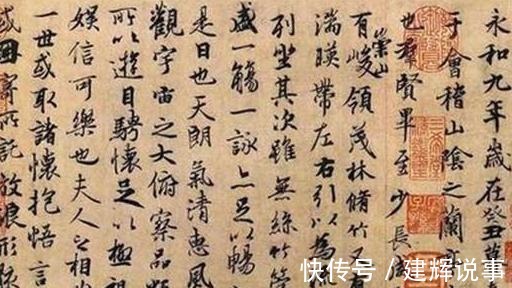 永和九年歲在癸丑暮
于會稽山陰之蘭亭
也羣賢畢至少長
有崇山峻領茂林脩竹又
湍暎帶左右引以為
列坐其次雖無絲竹管
盛一觴一詠亦足以暢
是日也天朗氣清惠風
觀宇宙之大俯察品類
所以遊目騁懷足以極視
娛信可樂也夫人之相
一世或取諸懷抱悟言
或因寄所託放浪形骸
快传号 / 建辉说事